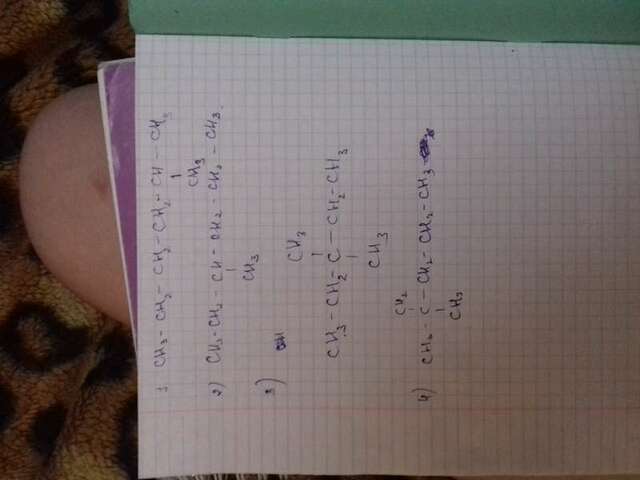 1 CH3 - CH2 - CH2 - CH2 - CH - CH3
CH3
2) CH3 - CH2 - CH - CH2 - CH2 - CH3
CH3
3)
CH3
CH3 - CH2 - C - CH2 - CH3
CH3
4)
CH3 - C - CH2 - CH2 - CH3
CH3